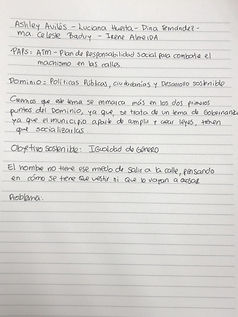 Ashley Avilés - Luciana Huerta - Dina Fernández -
Ma. Celeste Baduy - Irene Almeida
PAPS: ATM - Plan de Responsabilidad social para combatir el
machismo en las calles.
Dominio: Políticas Públicas, ciudadanías y Desarrollo sostenible
Creemos que este tema se enmarca más en los dos primeros
puntos del Dominio, ya que, se trata de un tema de Gobernanza
ya que el municipio aparte de ampliar y crear leyes, tienen
que socializarlas.
Objetivo Sostenible: Igualdad de Género
El hombre no tiene ese miedo de salir a la calle, pensando
en cómo se tiene que vestir si que lo vayan a acosar
Problema: